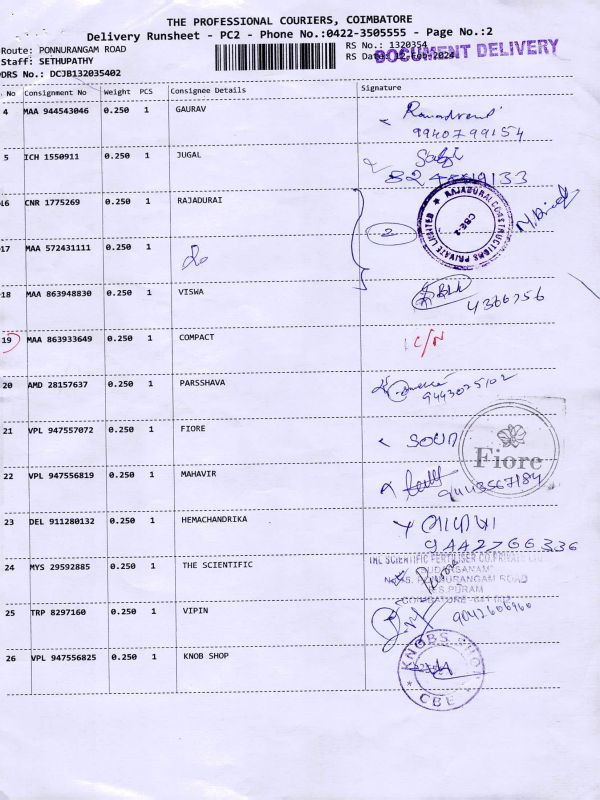 THE PROFESSIONAL COURIERS, COIMBATORE
Delivery Runsheet - PC2 - Phone No.:0422-3505555 - Page No.:2
Route: PONNURANGAM ROAD
RS No.: 1320354
Staff: SETHUPATHY
RS Date: 12-Feb-2024
DOCUMENT DELIVERY
DRS No.: DCJB132035402
No Consignment No Weight PCS Consignee Details Signature
4 MAA 944543046 0.250 1 GAURAV
9940799154
5 ICH 1550911 0.250 1 JUGAL
16 CNR 1775269 0.250 1 RAJADURAI
RAJADURAI CONSTRUCTIONS PRIVATE LIMITED
CBE-2
2
17 MAA 572431111 0.250 1
18 MAA 863948830 0.250 1 VISWA
4366756
19 MAA 863933649 0.250 1 COMPACT
C/N
20 AMD 28157637 0.250 1 PARSSHAVA
9443035102
21 VPL 947557072 0.250 1 FIORE
Fiore
22 VPL 947556819 0.250 1 MAHAVIR
9443567184
23 DEL 911280132 0.250 1 HEMACHANDRIKA
9442766336
24 MYS 29592885 0.250 1 THE SCIENTIFIC
THE SCIENTIFIC FERTILISER CO.PRIVATE
"SUDARSANAM"
PONNURANGAM ROAD
R.S.PURAM
COIMBATORE - 641
25 TRP 8297160 0.250 1 VIPIN
9042606960
26 VPL 947556825 0.250 1 KNOB SHOP
KNOBS SHOP
CBE